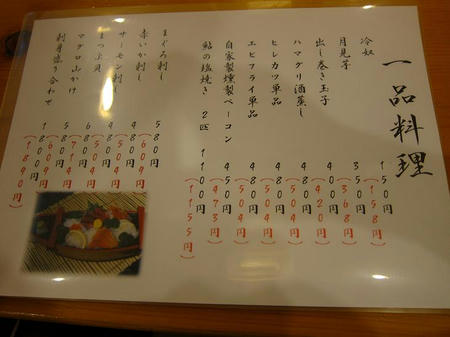 一品料理
冷奴 150円
(158円)
月見芋 350円
(368円)
出し巻き玉子 400円
(420円)
ハマグリ酒蒸し 480円
(504円)
ヒレカツ単品 480円
(504円)
エビフライ単品 480円
(504円)
自家製燻製ベーコン 450円
(473円)
鮎の塩焼き 2匹 1100円
(1155円)
まぐろ刺し 580円
(609円)
赤いか刺し 480円
(504円)
サーモン刺し 480円
(504円)
まつぶ貝 680円
(714円)
マグロ山かけ 580円
(609円)
刺身盛り合わせ 1800円
(1890円)